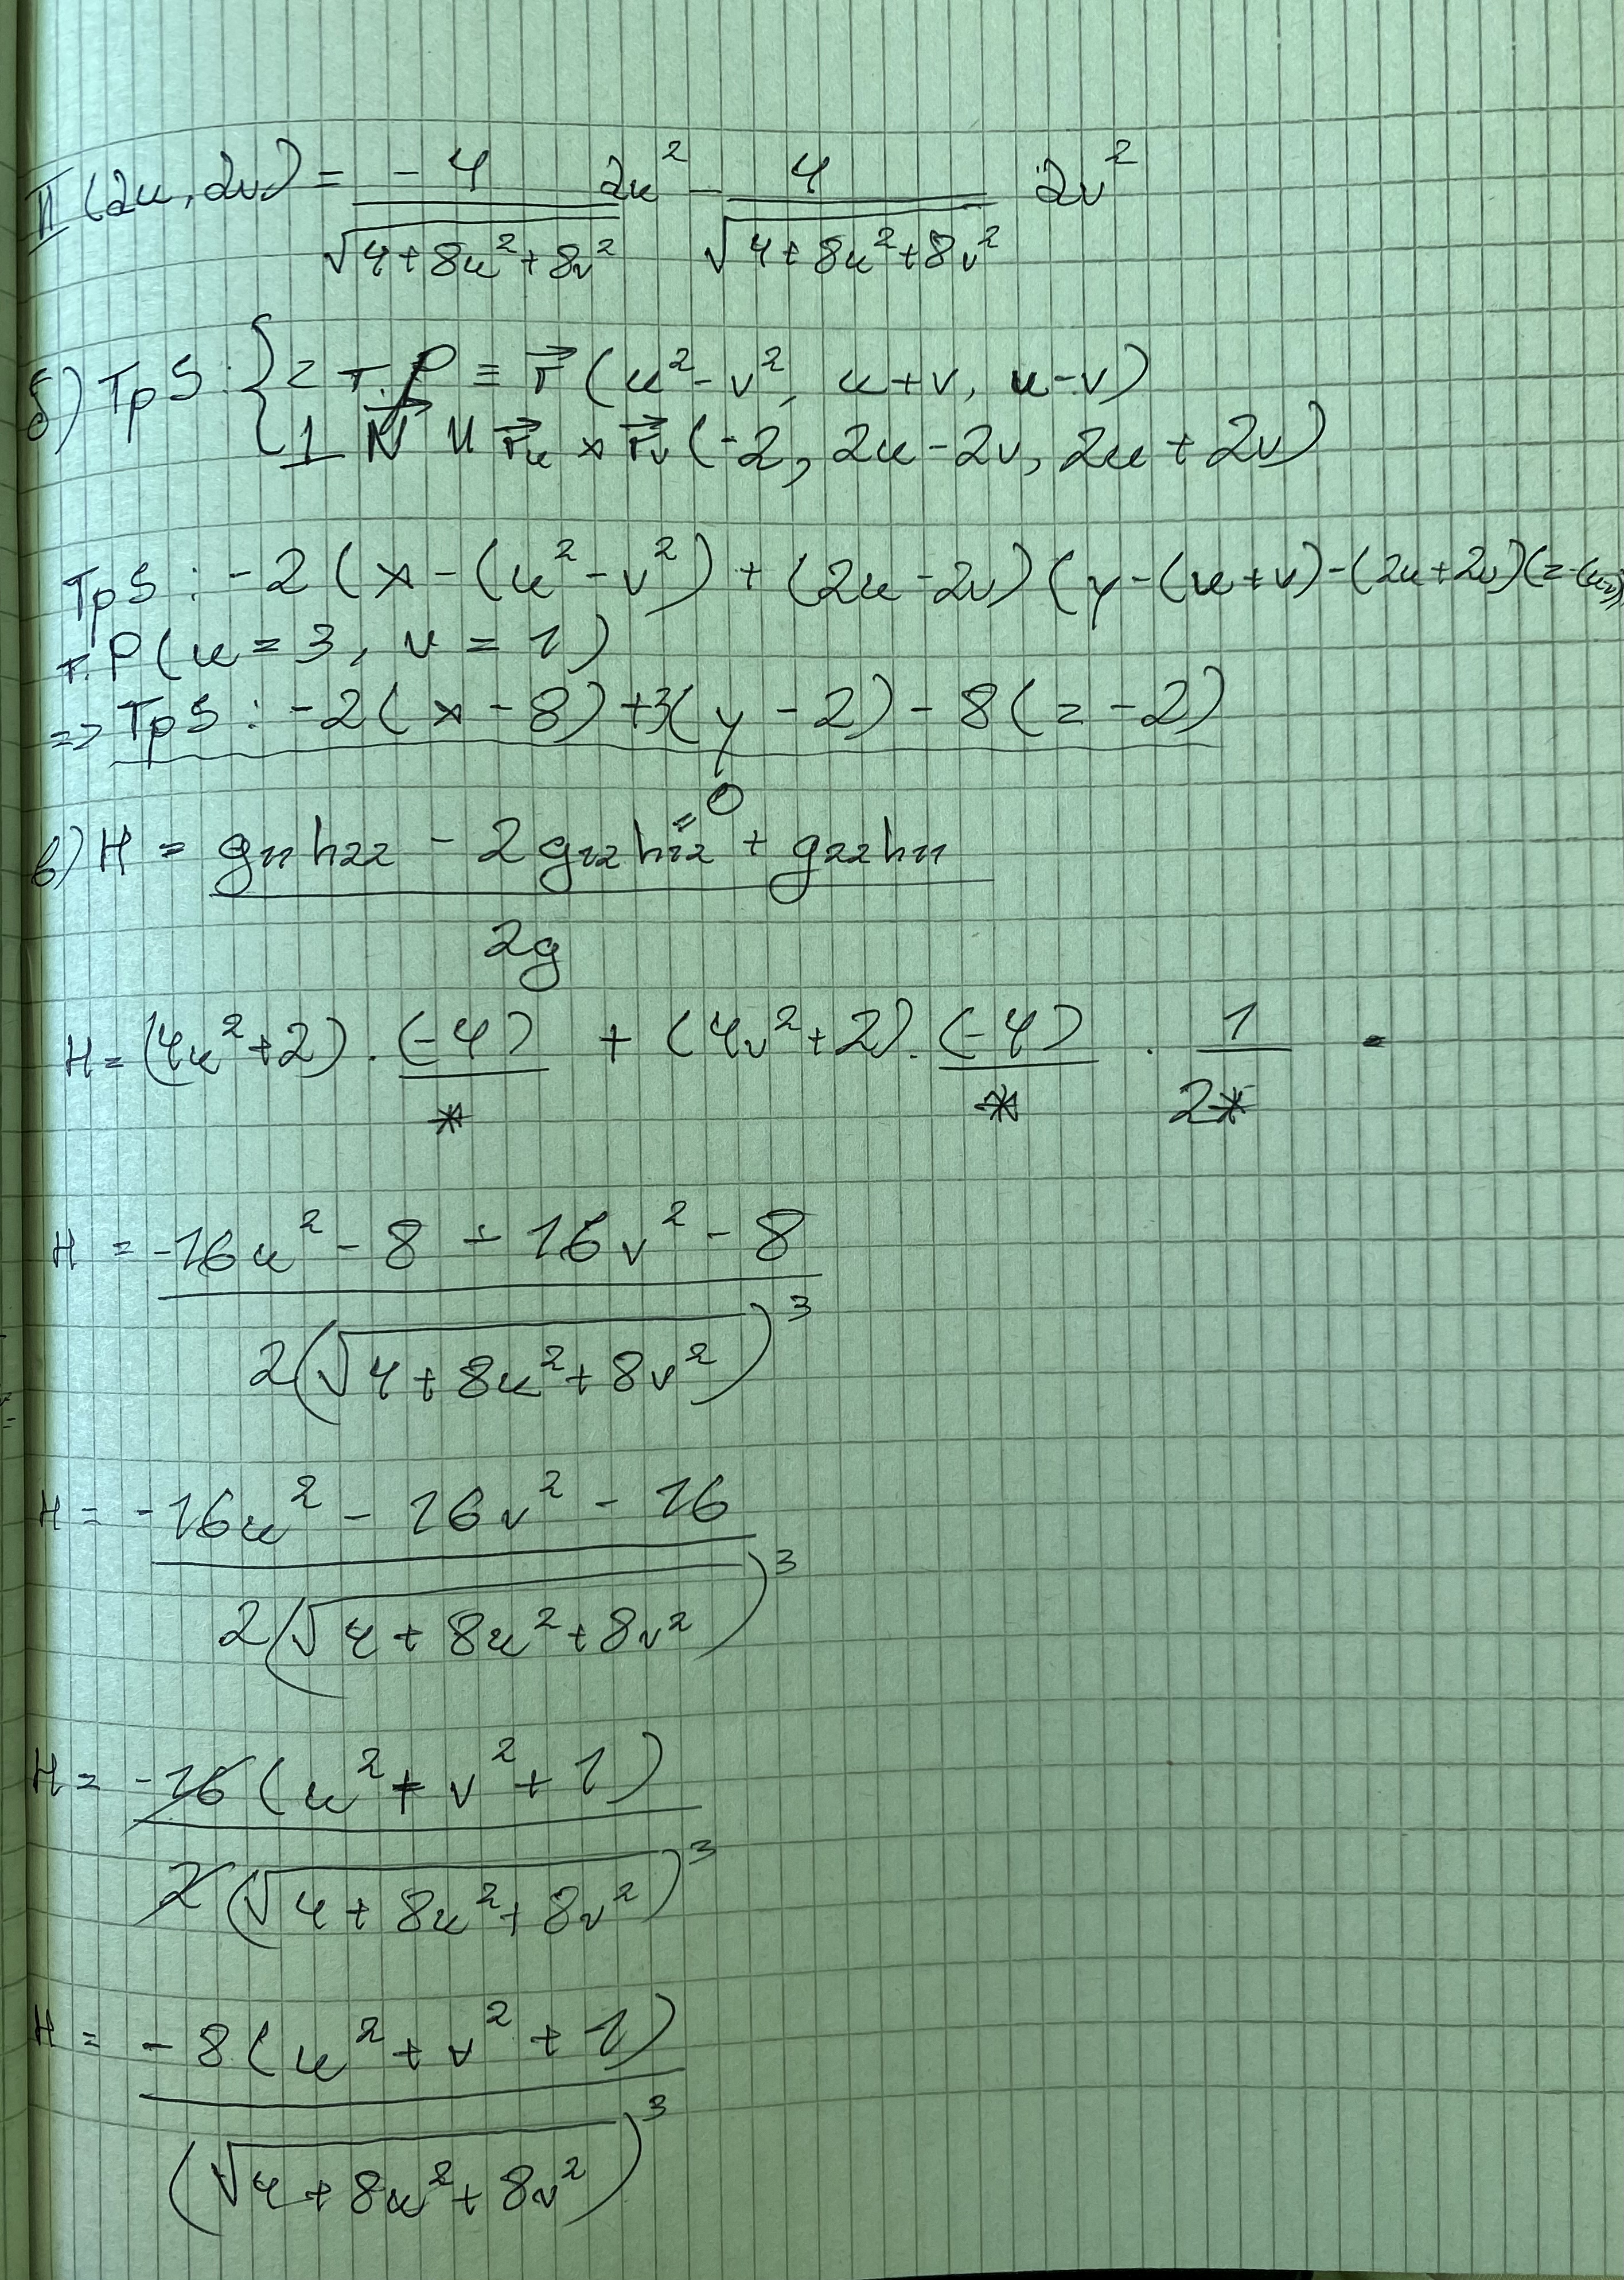 II (2u, 2v) = -4/√(4+8u²+8v²) 2u² - 4/√(4+8u²+8v²) 2v²
б) TpS : { z т. P ≡ r⃗ (u²-v², u+v, u-v)
⊥ N⃗ ıı r⃗u × r⃗v (-2, 2u-2v, 2u+2v)
TpS : -2(x-(u²-v²)+(2u-2v)(y-(u+v)-(2u+2v)(z-(u-v))
т. P(u=3, v=1)
=> TpS : -2(x-8)+3(y-2)-8(z-2)
=0
в) H = g11h22 - 2g12h12 + g22h11
2g
H = (4u²+2) . (-4)/* + (4v²+2) . (-4)/* . 1/2* =
H = -16u² - 8 - 16v² - 8
2(√(4+8u²+8v²))³
H = -16u² - 16v² - 16
2(√(4+8u²+8v²))³
H = -16(u²+v²+1)
2(√(4+8u²+8v²))³
H = -8(u²+v²+1)
(√(4+8u²+8v²))³